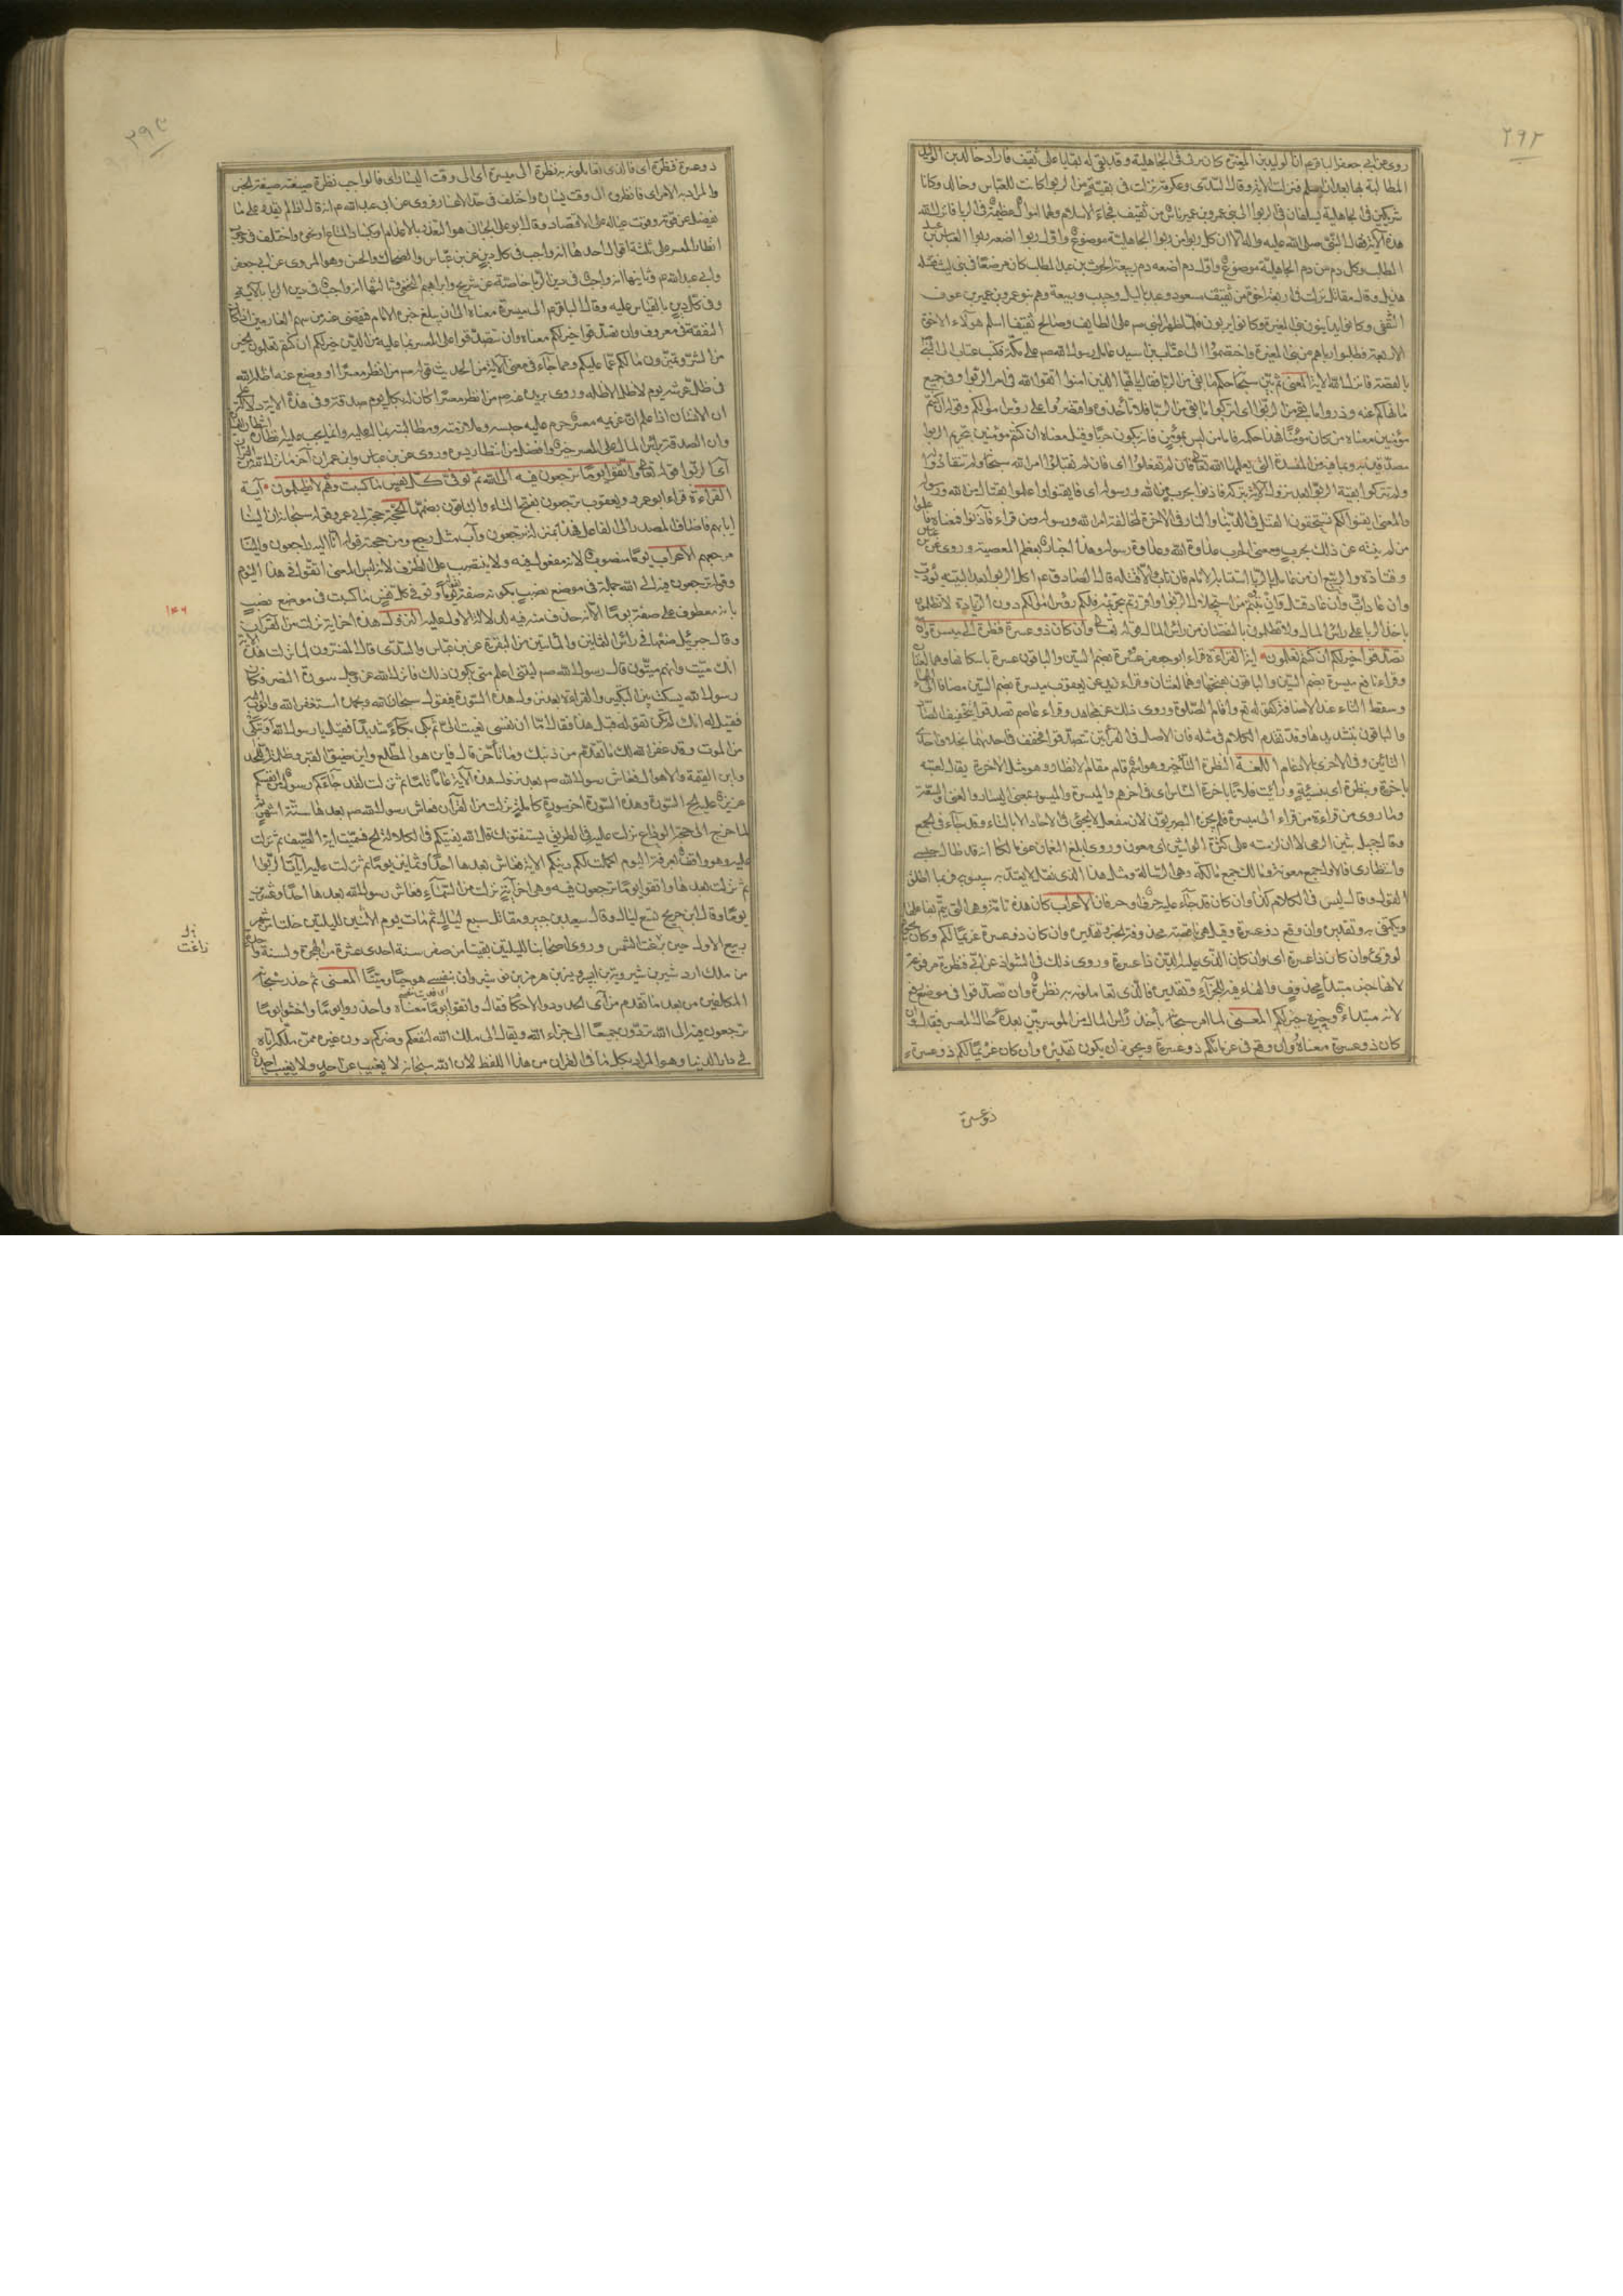 ٢٩٢
روى عن ابى جعفر الباقر ع م ان الوليد بن المغيرة كان يربى فى الجاهلية وقد بقى له بقايا على ثقيف فاراد خالد بن الوليد
المطالبة بها بعد ان اسلم فنزلت الاية وقال السدى وعكرمة نزلت فى بقية من الربوا كانت للعباس وخالد وكانا
شريكين فى الجاهلية يسلفان فى الربوا الى بنى عمرو بن عمير ناس من ثقيف فجاء الاسلام ولهما اموال عظيمة فى الربا فانزل الله
هذه الاية فقال النبى صلى الله عليه واله الا ان كل ربوا من ربوا الجاهلية موضوع واول ربوا اضعه ربوا العباس بن عبد
المطلب وكل دم من دم الجاهلية موضوع واول دم اضعه دم ربيعة بن الحرث بن عبد المطلب كان مرضعا فى بنى ليث فقتله
هذيل وقال مقاتل نزلت فى اربعة اخوة من ثقيف مسعود وعبد ياليل وحبيب وربيعة وهم بنو عمرو بن عمير بن عوف
الثقفى وكانوا يداينون بنى المغيرة وكانوا يربون فلما ظهر النبى صم على الطايف وصالح ثقيفا اسلم هؤلاء الاخوة
الاربعة فطلبوا رباهم من بنى المغيرة واختصموا الى عتاب بن اسيد عامل رسول الله صم على مكة فكتب عتاب الى النبى
بالقصة فانزل الله الاية المعنى ثم بين سبحانه حكم ما بقى من الربا فقال يا ايها الذين امنوا اتقوا الله فى امر الربوا وفى جميع
ما نهاكم عنه وذروا ما بقى من الربوا اى اتركوا ما بقى من الربا فلا تأخذوه واقتصروا على رؤس اموالكم وقوله ان كنتم
مؤمنين معناه من كان مؤمنا فهذا حكمه فاما من ليس بمؤمن فانه يكون حربا وقيل معناه ان كنتم مؤمنين بتحريم الربوا
مصدقين به وبما فيه من المفسدة التى يعلمها الله تعالى فان لم تفعلوا اى فان لم تقبلوا امر الله سبحانه ولم تنقادوا له
ولم تتركوا بقية الربوا بعد نزول الاية بتركه فاذنوا بحرب من الله ورسوله اى فايقنوا واعلموا بقتال من الله ورسوله
والمعنى ايقنوا انكم تستحقون القتل فى الدنيا والنار فى الاخرة لمخالفة امر الله ورسوله ومن قراء فآذنوا فمعناه فاعلموا
من لم ينته عن ذلك بحرب ومعنى الحرب عداوة الله وعداوة رسوله وهذا اخبار بعظم المعصية وروى عن ابن عباس
وقتادة والربيع ان من عامل بالربا استتابه الامام فان تاب والا قتله قال الصادق ع م اكل الربوا بعد البينة يؤدب
وان عاد ادب وان عاد قتل وان تبتم من استحلال الربوا واقررتم بتحريمه فلكم رؤس اموالكم دون الزيادة لا تظلمون
باخذ الربا على رأس المال ولا تظلمون بالنقصان من رأس المال قوله تعالى وان كان ذو عسرة فنظرة الى ميسرة وان
تصدقوا خير لكم ان كنتم تعلمون اية القراءة قراء ابو جعفر عسرة بضم السين والباقون عسرة باسكانها وهما لغتان
وقراء نافع ميسرة بضم السين والباقون بفتحها وهما لغتان وقراء زيد عن يعقوب ميسره بضم السين مضافا الى الهاء
وسقط التاء عند الاضافة كقوله تع واقام الصلوة وروى ذلك عن مجاهد وقراء عاصم تصدقوا بتخفيف الصاد
والباقون بتشديدها وقد تقدم الكلام فى مثله فان الاصل فى القرائتين تتصدقوا فخفف فاحديهما بحذف احدى
التائين وفى الاخرى بالادغام اللغة النظرة التأخير وهو اسم قام مقام الانظار وهو مثل الاخرة يقال بعته
باخرة وبنظرة اى بنسيئة ورأيت فلانا باخرة الناس اى فى اخرهم والميسرة والميسور بمعنى اليسار والغنى والسعة
وما روى من قراءة من قراء الى ميسره فلم يجزه البصريون لان مفعل لا يجئ فى الاحاد الا بالتاء وقد جاء فى الجمع
وقال جميل بثين الزمى لا ان لا ان لزمته على كثرة الواشين اى معون وروى ابلغ النعمان عنى مالكا انه قد طال حبسى
وانتظارى فالاول جمع معونة ومالك جمع مالكة وهى الرسالة ومثل هذا الذى نقل لا يعتد به سيبويه فربما اطلق
القول وقال ليس فى الكلام كذا وان كان قد جاء عليه حرف او حرفان الاعراب كان هذه تامة وهى التى يتم بفاعلها
ويكتفى به وتقديره وان وقع ذو عسرة وقيل هى ناقصة محذوفة الخبر تقديره وان كان ذو عسرة غريما لكم وكان يجوز
لو قرئ وان كان ذا عسرة اى وان كان الذى عليه الدين ذا عسرة وروى ذلك فى الشواذ عن ابى فنظرة مرفوعة
لانها خبر مبتدأ محذوف والفاء فيه للجزاء وتقديره فالذى تعاملونه به نظرة وان تصدقوا فى موضع رفع
لانه مبتداء وخيره خير لكم المعنى لما امر سبحانه بأخذ رأس المال من الموسر بين بعده حال المعسر فقال وان
كان ذو عسرة معناه وان وقع فى غرمائكم ذو عسرة ويجوز ان يكون تقديره وان كان غريما لكم ذو عسرة
ذو عسرة
٢٩٣
ذو عسرة فنظرة اى فالذى تعاملونه به نظرة الى ميسرة اى الى وقت اليسار اى فالواجب نظرة صيغته صيغة الخبر
والمراد به الامر اى فانظروه الى وقت يساره واختلف فى حد الاعسار فروى عن ابى عبد الله ع م انه قال اذا لم يقدر على ما
يفضل عن قوته وقوت عياله على الاقتصاد وقال ابو على الجبائى هو التعذر بالاعدام او بكساد المتاع او نحوه واختلف فى وجوب
انظار المعسر على ثلثة اقوال احدها انه واجب فى كل دين عن ابن عباس والضحاك والحسن وهو المروى عن ابى جعفر
وابى عبد الله ع م وثانيها انه واجب فى دين الربا خاصة عن شريح وابراهيم النخعى وثالثها انه واجب فى دين الربا بالاية
وفى كل دين بالقياس عليه وقال الباقر ع م الى ميسرة معناه الى ان يبلغ خبره الامام فيقضى عنه من سهم الغارمين اذا كان
انفقه فى معروف وان تصدقوا خير لكم معناه وان تتصدقوا على المعسر بما عليه من الدين خير لكم ان كنتم تعلمون الخير
من الشر وتميزون ما لكم مما عليكم ومما جاء فى معنى الاية من الحديث قوله صم من انظر معسرا او وضع عنه اظله الله
فى ظل عرشه يوم لا ظل الا ظله وروى بريدة عنه صم من انظر معسرا كان له بكل يوم صدقة وفى هذه الاية دلالة على
ان الانسان اذا علم ان غريمه معسر حرم عليه حبسه وملازمته ومطالبته بما له عليه وانه يجب عليه انظاره انتظار اليساره
وان الصدقة برأس المال على المعسر خير وافضل من انتظار يسره وروى عن ابن عباس وابن عمر ان آخر ما نزل من القران
آى الربوا قوله تعالى واتقوا يوما ترجعون فيه الى الله ثم توفى كل نفس ما كسبت وهم لا يظلمون آية
القراءة قراء ابو عمرو ويعقوب ترجعون بفتح التاء والباقون بضمها الحجة حجة ابى عمرو قوله سبحانه ان الينا
ايابهم فاضاف المصدر الى الفاعل فهذا بمنزلة ترجعون وآب مثل رجع ومن حجته قوله انا اليه راجعون والينا
مرجعهم الاعراب يوما منصوب لانه مفعول به ولا ينتصب على الظرف لانه ليس المعنى اتقوا فى هذا اليوم
وقوله ترجعون فيه الى الله جملة فى موضع نصب بكونه صفة ليوما وتوفى كل نفس ما كسبت فى موضع نصب
بانه معطوف على صفة يوما الا انه حذف منه فيه لدلالة الاول عليه النزول هذه اخر اية نزلت من القرآن
وقال جبرئيل ضعها فى رأس الثمانين والمأتين من البقرة عن ابن عباس والسدى قال المفسرون لما نزلت هذه الاية
انك ميت وانهم ميتون قال رسول الله صم ليتنى اعلم متى يكون ذلك فانزل الله عز وجل سورة النصر فكان
رسول الله يسكت بين التكبير والقراءة بعد نزول هذه السورة فيقول سبحان الله وبحمده استغفر الله واتوب اليه
فقيل له انك لم تكن تقوله قبل هذا فقال اما ان نفسى نعيت الى ثم بكى بكاء شديدا فقيل يا رسول الله او تبكى
من الموت وقد غفر الله لك ما تقدم من ذنبك وما تأخر قال فاين هول المطلع واين ضيق القبر وظلمة اللحد
واين القيمة والاهوال فعاش رسول الله صم بعد نزول هذه الاية عاما تاما ثم نزلت لقد جاءكم رسول من انفسكم
عزيز عليه الى اخر السورة وهذه السورة اخر سورة كاملة نزلت من القرآن فعاش رسول الله صم بعدها ستة اشهر ثم
لما خرج الى حجة الوداع نزلت عليه فى الطريق يستفتونك قل الله يفتيكم فى الكلالة الخ فسميت اية الصيف ثم نزلت
عليه وهو واقف بعرفة اليوم اكملت لكم دينكم الاية فعاش بعدها احدا وثمانين يوما ثم نزلت عليه ايات الربوا
ثم نزلت بعدها واتقوا يوما ترجعون فيه وهى اخر آية نزلت من السماء فعاش رسول الله بعدها احدا وعشرين
يوما وقال ابن جريح تسع ليال وقال سعيد بن جبير ومقاتل سبع ليال ثم مات يوم الاثنين لليلتين خلتا من شهر
ربيع الاول حين بزغت الشمس وروى اصحابنا لليلتين بقيتا من صفر سنة احدى عشرة من الهجرة ولسنة واحدة
من ملك اردشير بن شيرويه بن ابرويز بن هرمز بن نوشيروان بنفسى هو حيا وميتا المعنى ثم حذر سبحانه
المكلفين من بعد ما تقدم من آى الحدود والاحكام فقال واتقوا يوما معناه واحذروا يوما واخشوا يوما
ترجعون فيه الى الله تردون جميعا الى جزاء الله ويقال الى ملك الله لنفعكم وضركم دون غيره ممن ملكه اياه
فى دار الدنيا وهو المراد بكل ما فى القران من هذا اللفظ لان الله سبحانه لا يغيب عن احد ولا يغيب احد